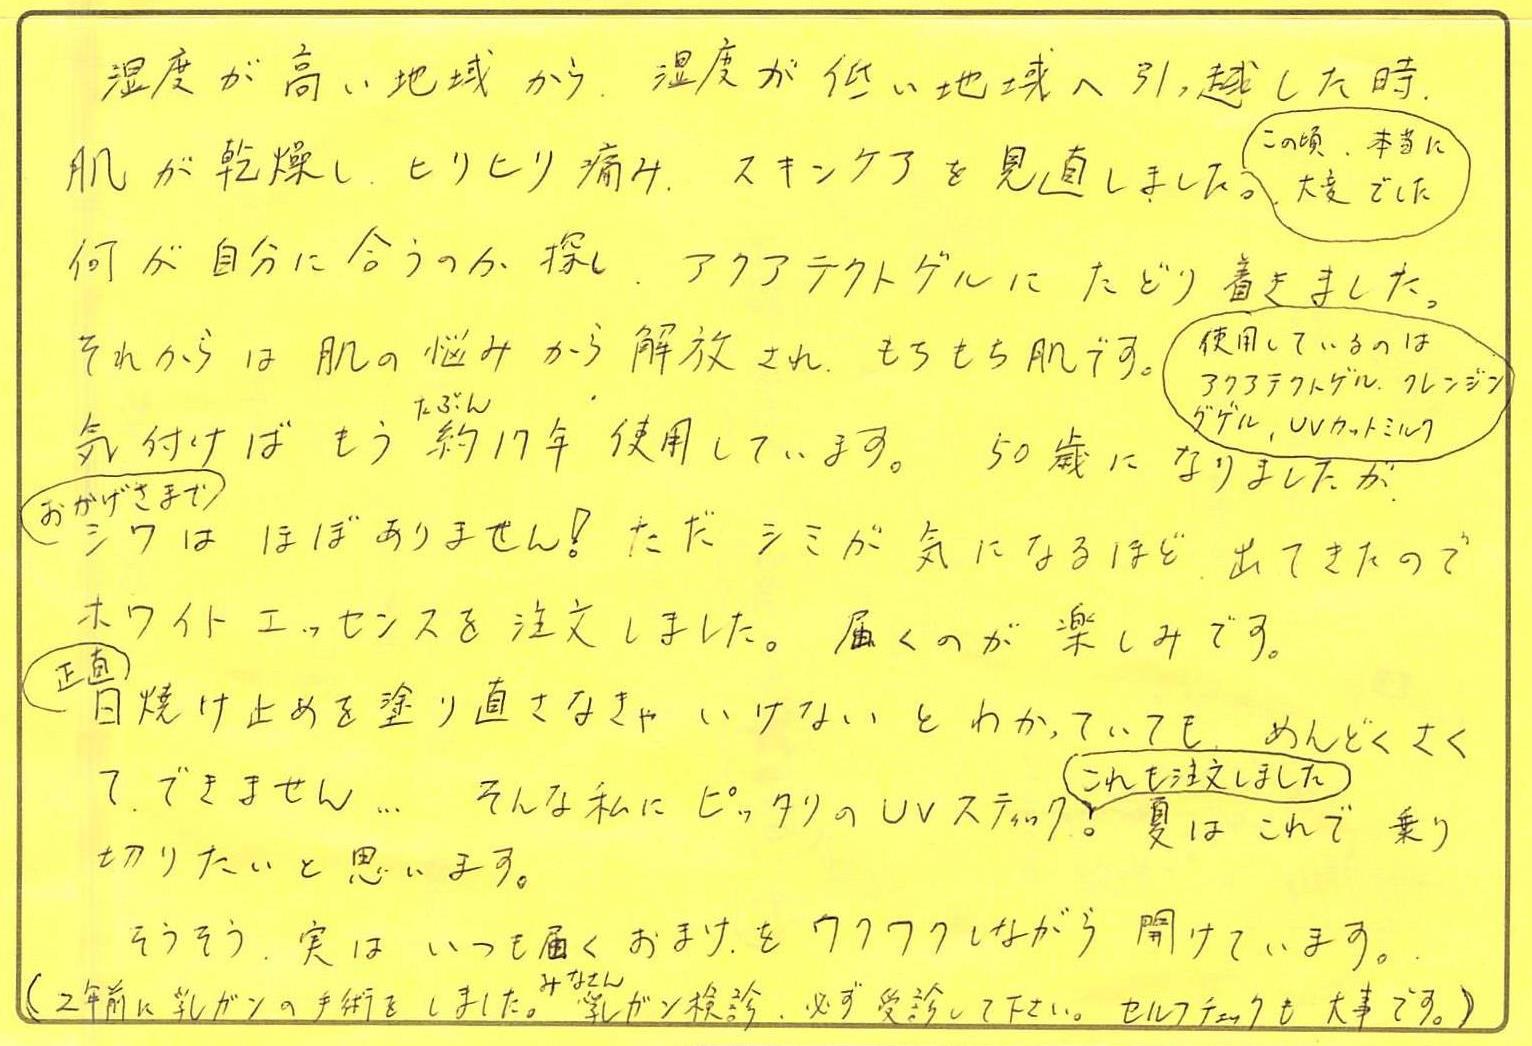 湿度が高い地域から、湿度が低い地域へ引っ越した時、
肌が乾燥し、ヒリヒリ痛み、スキンケアを見直しました。
この頃、本当に
大変でした
何が自分に合うのか探し、アクアテクトゲルにたどり着きました。
それからは肌の悩みから解放され、もちもち肌です。
使用しているのは
アクアテクトゲル、クレンジン
グゲル、UVカットミルク
たぶん
気付けばもう約17年使用しています。 50歳になりましたが、
おかげさまで
シワはほぼありません! ただシミが気になるほど、出てきたので
ホワイトエッセンスを注文しました。届くのが楽しみです。
正直
日焼け止めを塗り直さなきゃいけないとわかっていても、めんどくさく
て、できません… そんな私にピッタリのUVスティック。夏はこれで乗り
これも注文しました
切りたいと思います。
そうそう、実はいつも届くおまけをワクワクしながら開けています。
みなさん
(2年前に乳ガンの手術をしました。乳ガン検診、必ず受診して下さい。セルフチェックも大事です。)